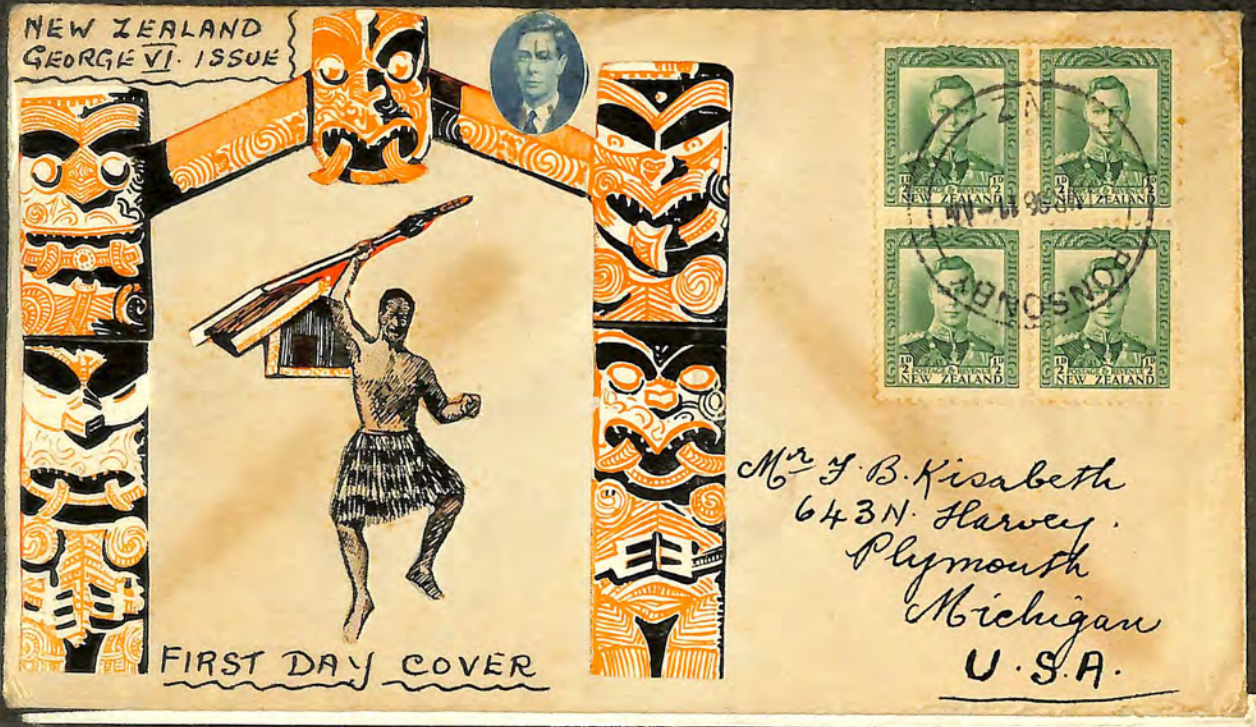 NEW ZEALAND
GEORGE VI. ISSUE
FIRST DAY COVER
½D POSTAGE & REVENUE ½D
NEW ZEALAND
½D POSTAGE & REVENUE ½D
NEW ZEALAND
½D POSTAGE & REVENUE ½D
NEW ZEALAND
½D POSTAGE & REVENUE ½D
NEW ZEALAND
PONSONBY
NZ
Mr F. B. Kisabeth
643 N. Harvey.
Plymouth
Michigan
U.S.A.